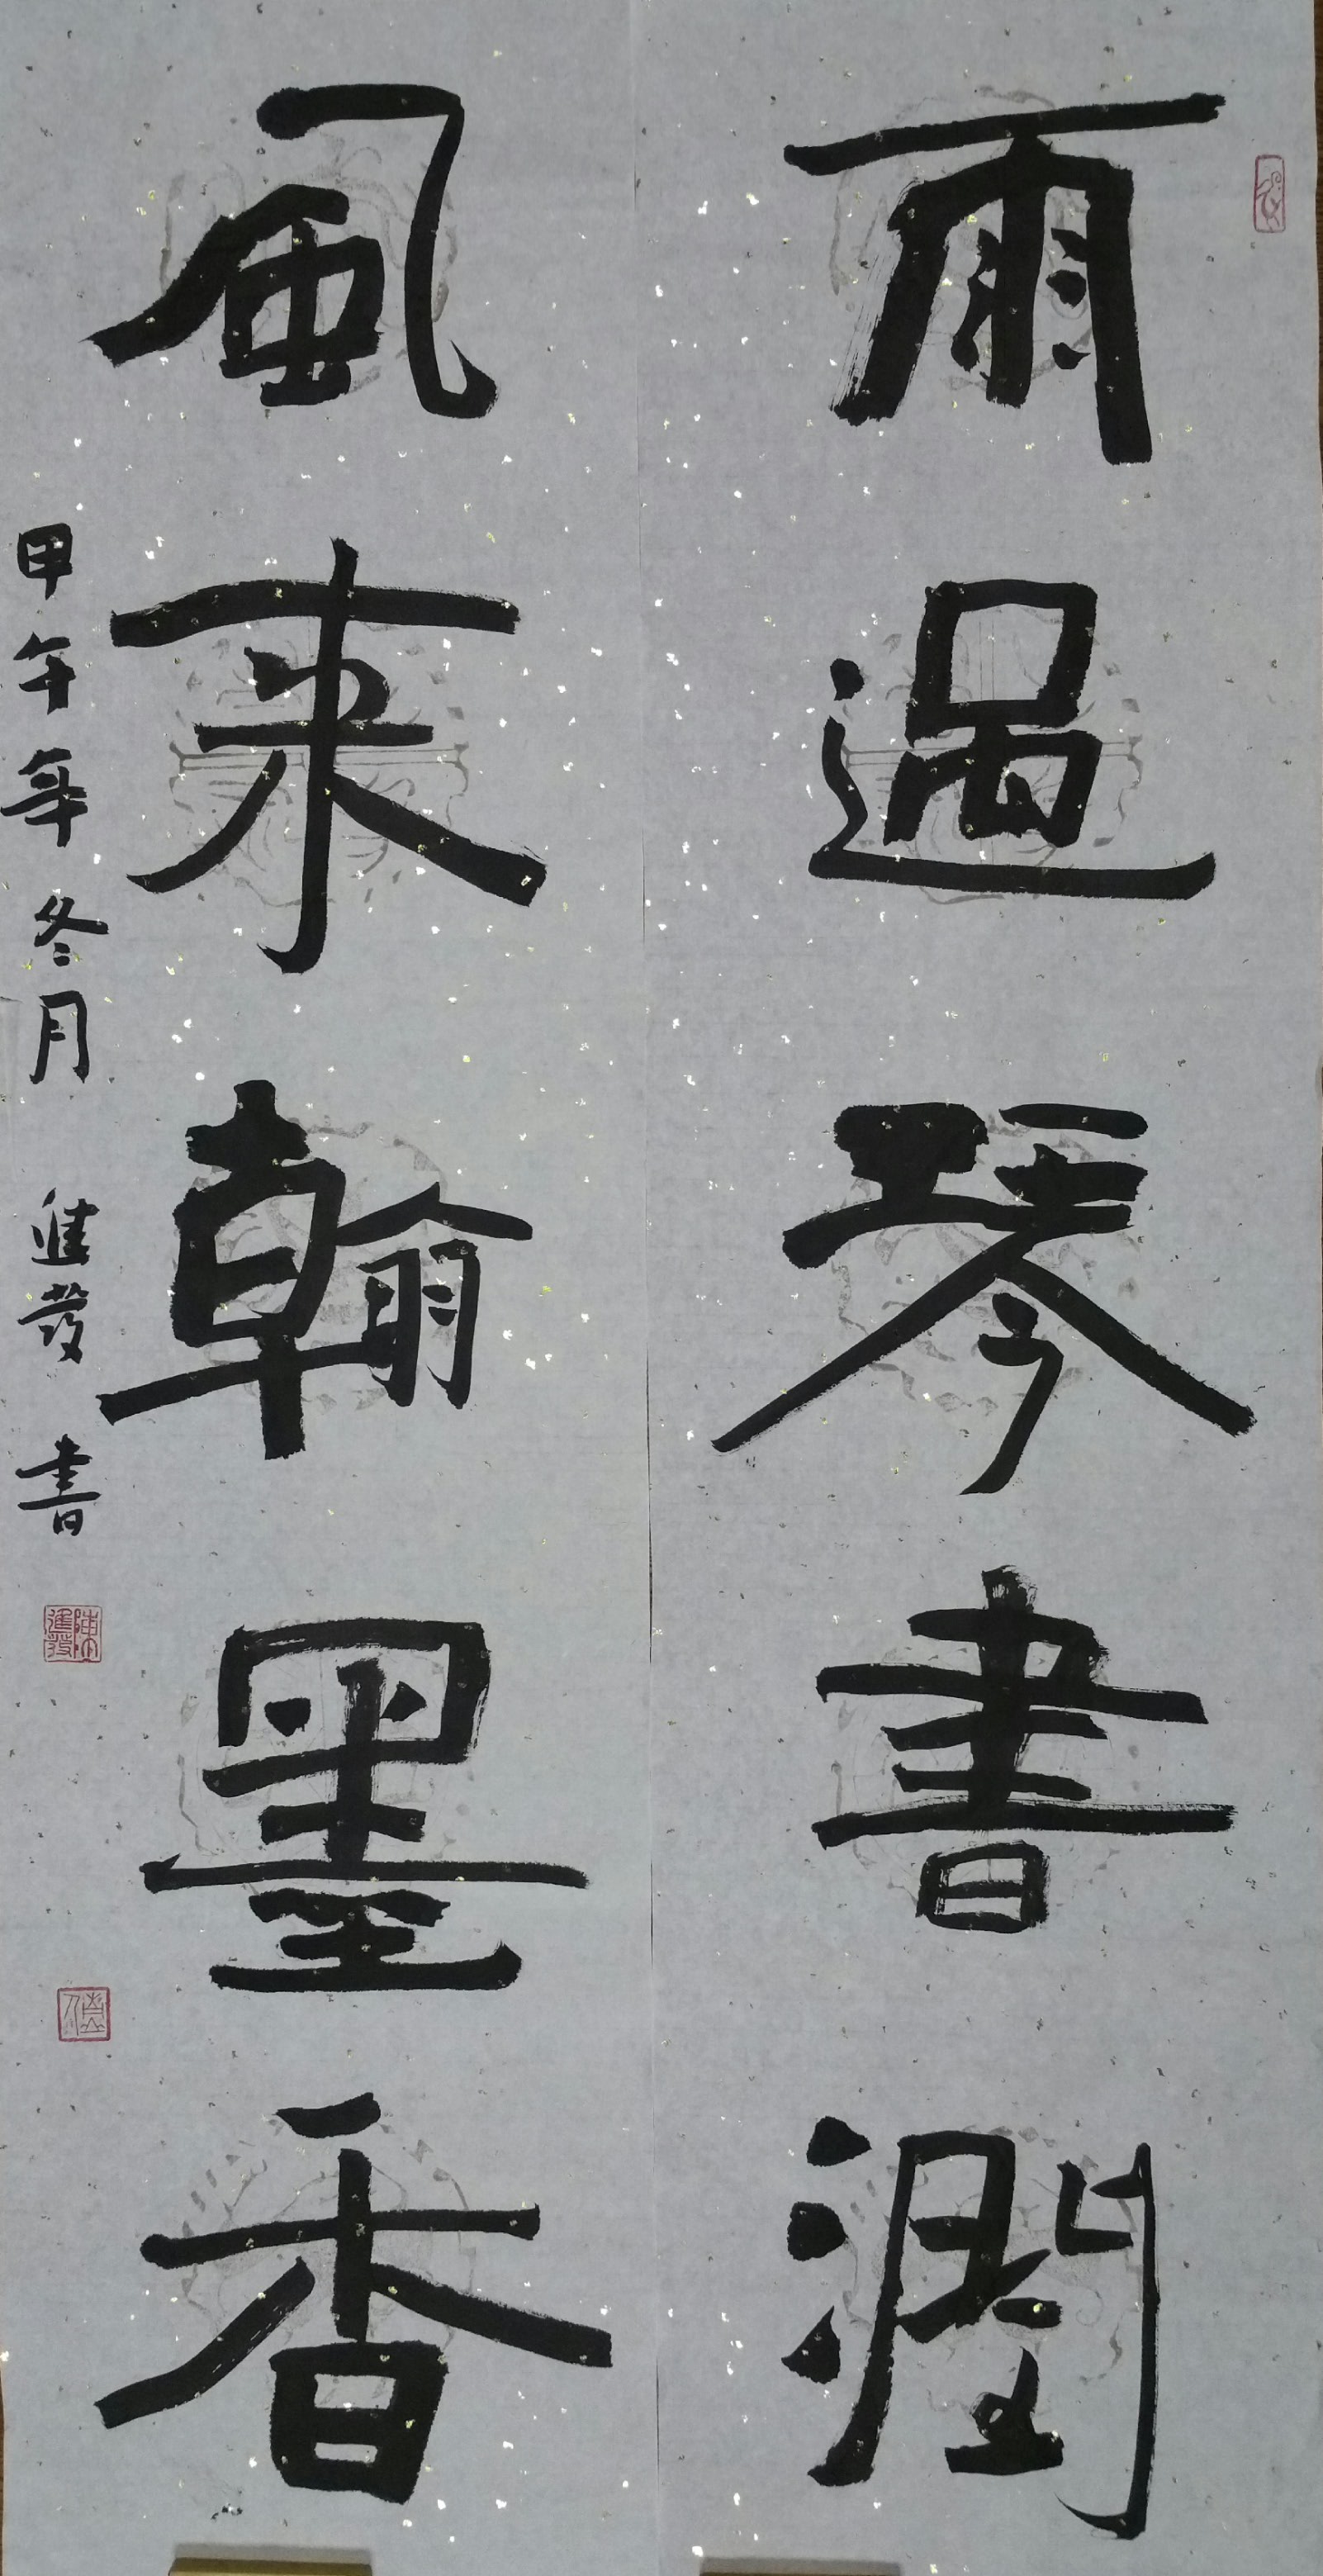 雨過琴書潤
風来翰墨香
甲午年冬月 進發 書
陳進發